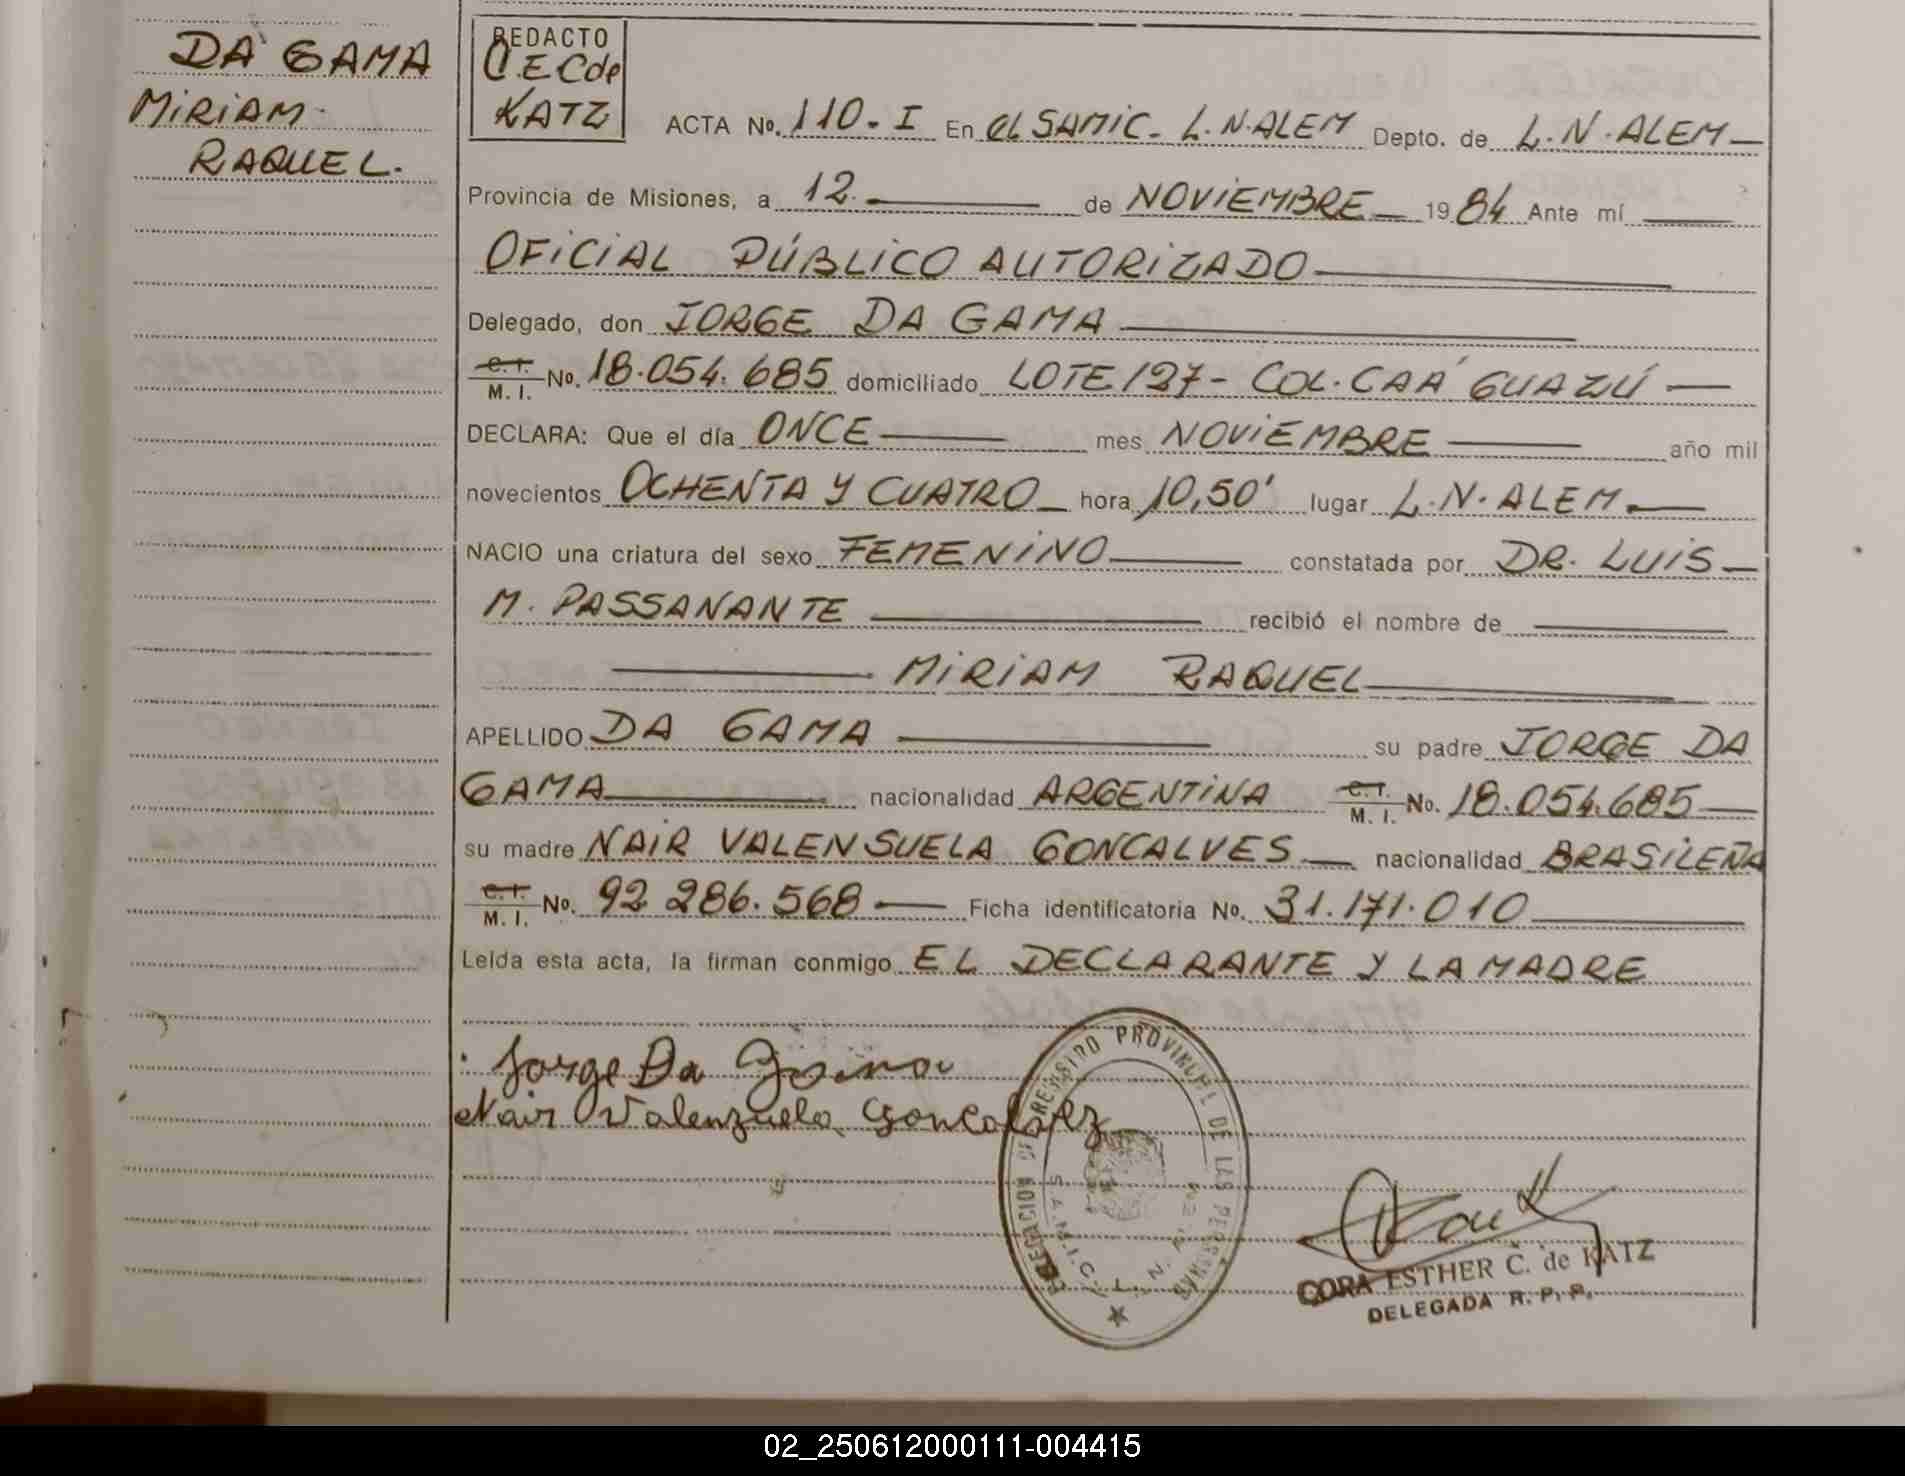 DA GAMA
MIRIAM
RAQUEL.
REDACTO
C.E.C de
KATZ
ACTA No. 110-I En el SAMIC. L.N.ALEM Depto. de L.N.ALEM
Provincia de Misiones, a 12. de NOVIEMBRE 1984 Ante mí
OFICIAL PÚBLICO AUTORIZADO
Delegado, don JORGE DA GAMA
C.I. M. I. No. 18.054.685 domiciliado LOTE 127 - COL. CAÁ GUAZÚ
DECLARA: Que el día ONCE mes NOVIEMBRE año mil
novecientos OCHENTA Y CUATRO hora 10,50' lugar L.N.ALEM
NACIO una criatura del sexo FEMENINO constatada por DR. LUIS
M. PASSANANTE recibió el nombre de
MIRIAM RAQUEL
APELLIDO DA GAMA su padre JORGE DA
GAMA nacionalidad ARGENTINA C.I. M. I. No. 18.054.685
su madre NAIR VALENSUELA GONCALVES nacionalidad BRASILEÑA
C.I. M. I. No. 92 286.568 Ficha identificatoria No. 31.171.010
Leída esta acta, la firman conmigo EL DECLARANTE Y LA MADRE
Jorge Da Gama
Nair Valenzuela Goncalvez
DELEGACION DE REGISTRO PROVINCIAL DE LAS PERSONAS
S.A.M.I.C. L. N.
CORA ESTHER C. de KATZ
DELEGADA R. P. P.
02_250612000111-004415